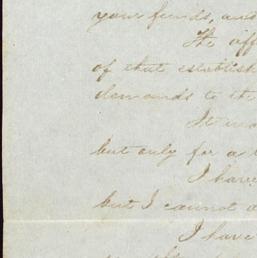 your funds, and
The off
of that establish
demands to the
It
but only for a
I have
but I cannot a
I have